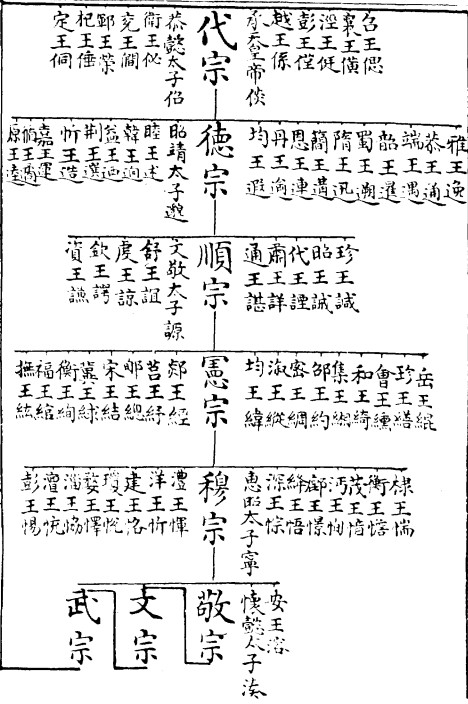 召王偲
襄王僙
涇王侹
彭王僅
越王係
承天皇帝倓
代宗
恭懿太子佋
衛王佖
兗王僩
鄆王榮
杞王倕
定王侗
雅王逸
恭王通
端王遇
韶王暹
蜀王遡
隋王迅
簡王遘
恩王連
丹王逾
均王遐
德宗
昭靖太子邈
睦王述
韓王迥
益王迺
荊王選
忻王造
嘉王運
循王遹
原王逵
珍王諴
昭王誡
代王諲
肅王詳
通王諶
順宗
文敬太子謜
舒王誼
虔王諒
欽王諤
資王謙
岳王緄
珍王繕
會王纁
和王綺
集王緗
邵王約
密王綢
淑王縱
均王緯
憲宗
郯王經
莒王紓
郇王總
宋王結
冀王絿
衡王絢
福王綰
撫王紘
棣王惴
衡王憺
茂王愔
沔王恂
鄜王憬
絳王悟
深王悰
惠昭太子寧
穆宗
澧王惲
洋王忻
建王恪
瓊王悅
婺王懌
淄王協
澶王㤝
彭王惕
安王溶
懷懿太子湊
敬宗
文宗
武宗